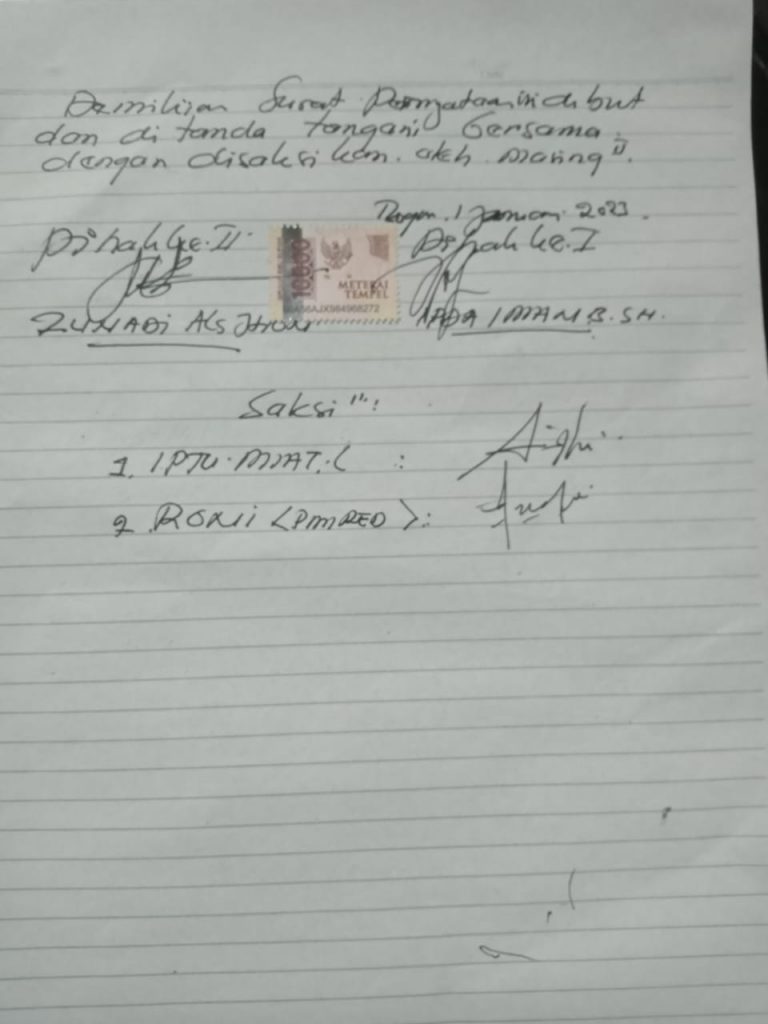 Demikian Surat Pernyataan ini di buat
dan di tanda tangani bersama
dengan disaksikan. oleh masing".
1 Januari 2023.
Pihak ke. II. Pihak ke. I
10000
METERAI
TEMPEL
ZUNADI Als IMAM B. SH.
Saksi":
1. IPTU. :
2. RONII <PIMRED>: